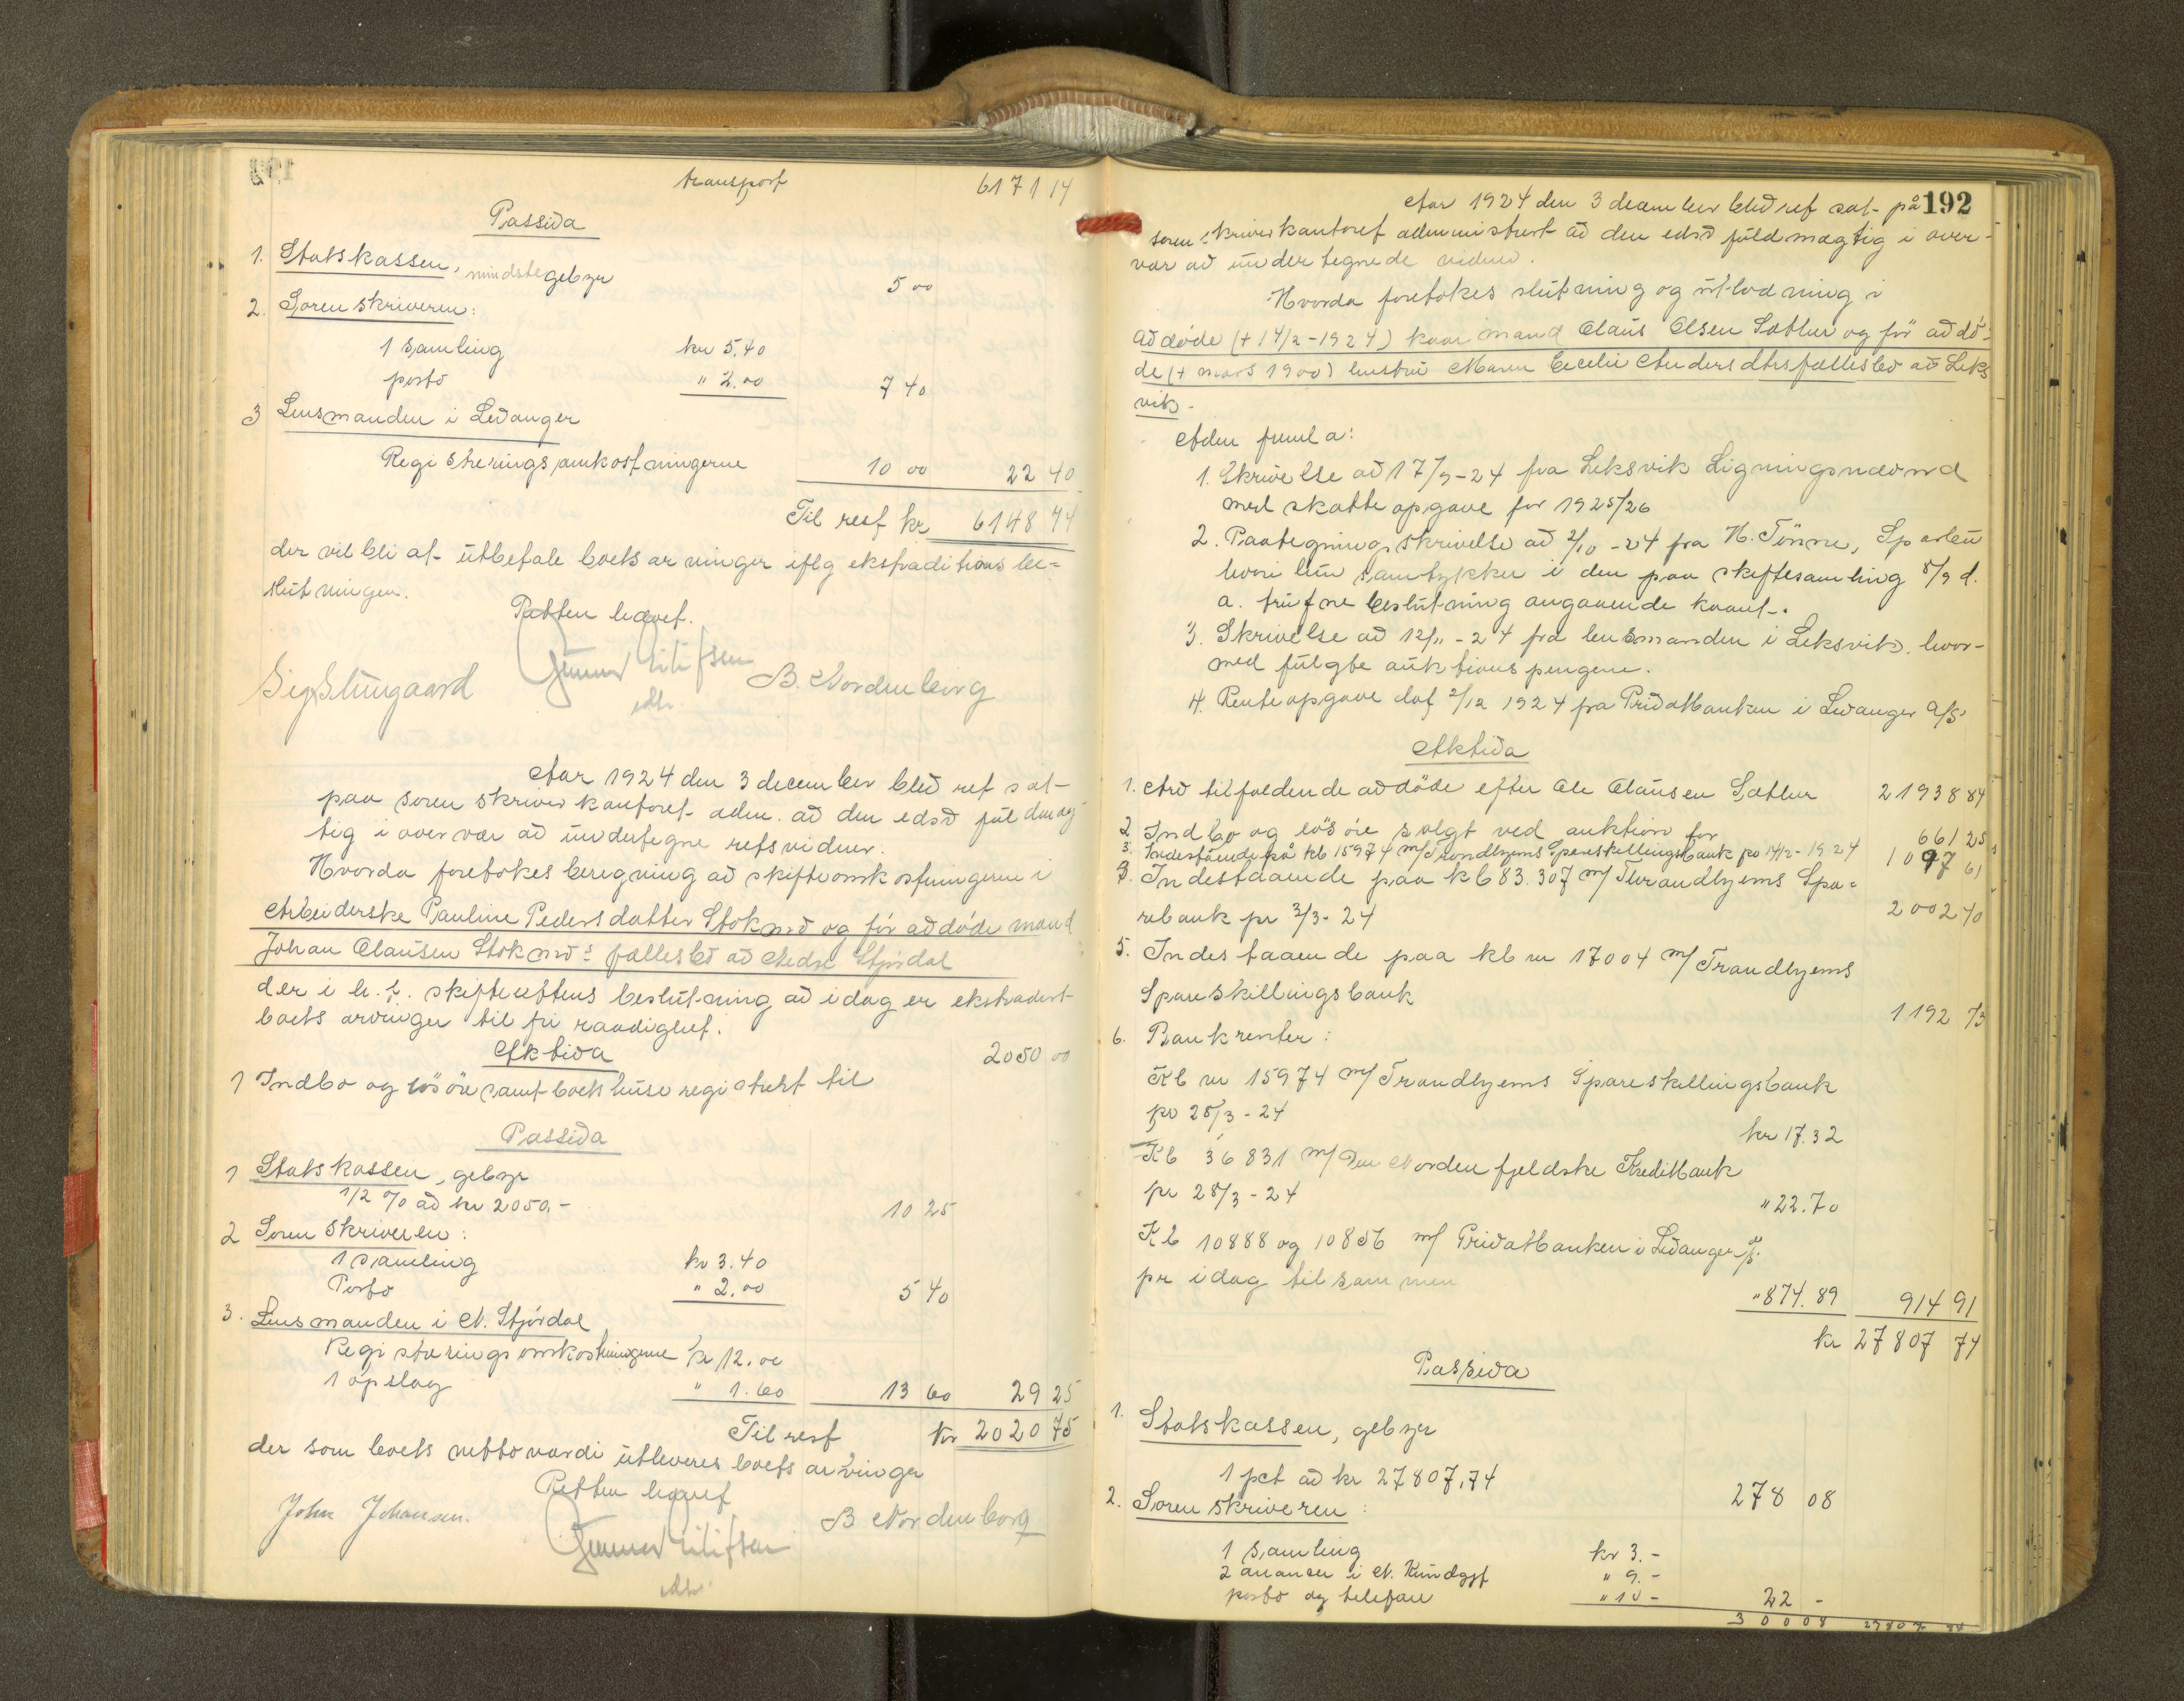 transport 6171 14
Passiva
1. Statskassen, mindstegebyr 5 00
2. Sorenskriveren:
1 samling kr 5.40
porto " 2.00 7 40
3 Lensmanden i Levanger
Registreringsomkostningerne 10 00 22 40
Til rest kr 6148 74
der vil bli at utbetale boets arvinger iflg ekstraditions be=
slutningen.
Retten hævet.
Gunnar Eilifsen B. Nordenborg
edsv.
Aar 1924 den 3 december blev ret sat
paa sorenskriverkontoret adm. av den edsv fuldmæg
tig i overvær av undertegne retsvidner.
Hvorda foretokes beregning av skifteomkostningerne i
Arbeiderske Pauline Pedersdatter Stokmo og før avdøde mand
Johan Clausen Stokmo's fællesbo av Nedre Stjørdal
der i h.t. skifterettens beslutning av idag er ekstradert
boets arvinger til fri raadighet.
Aktiva
1 Indbo og løsøre samt boets huse registrert til 2050 00
Passiva
1 Statskassen, gebyr
1/2 % av kr 2050,- 10 25
2 Sorenskriveren:
1 samling kr 3.40
Porto " 2.00 5 40
3. Lensmanden i N. Stjørdal
Registreringsomkostningerne kr 12.00
1 opslag " 1.60 13 60 29 25
Til rest kr 2020 75
der som boets nettoværdi utleveres boets arvinger
Retten hævet
John Johansen. Gunnar Eilifsen B Nordenborg
edsv.
192
Aar 1924 den 3 december blev ret sat på
sorenskriverkontoret administrert av den edsv fuldmægtig i over-
vær av undertegnede vidner.
Hvorda foretokes slutning og utlodning i
avdøde (+ 14/2-1924) kaarmand Claus Olsen Sætlur og før avdø-
de (+ mars 1900) hustru Maren Cecelie Andersdtrs fællesbo av Leks
vik.
Aden freml a:
1. Skrivelse av 17/9-24 fra Leksvik Ligningsnævnd
med skatteopgave for 1925/26
2. Paategningsskrivelse av 2/10-24 fra H. Tønne, Sparbu
hvori hun samtykker i den paa skiftesamling 8/9 d.
a. trufne beslutning angaaende kaaret.
3. Skrivelse av 12/11-24 fra lensmanden i Leksvik. hvor-
med fulgte auktionspengene.
4. Renteopgave dat 2/12 1924 fra Privatbanken i Levanger A/S
Aktiva
1. Arv tilfaldende avdøde efter Ole Clausen Sætlur 21938 84
2 Indbo og løsøre solgt ved auktion for 661 25
3. Indestående på kb 15974 m/ Trondhjems Spareskillingsbank pr 14/2-1924 1097 61
4. Indestaaende paa kb 83.307 m/ Throndhjems Spa=
rebank pr 3/3-24 2002 40
5. Indestaaende paa kb nr 17004 m/ Trondhjems
Spareskillingsbank 1192 73
6. Bankrenter:
Kb nr 15974 m/ Trondhjems Spareskillingsbank
pr 28/3-24 kr 17.32
Kb 36831 m/ Den Nordenfjeldske Kreditbank
pr 28/3-24 " 22.70
Kb 10888 og 10856 m/ Privatbanken i Levanger A/S
pr idag tilsammen " 874.89 914 91
kr 27807 74
Passiva
1. Statskassen, gebyr
1 pct av kr 27807,74 278 08
2. Sorenskriveren:
1 samling kr 3.-
2 anoncer i N. Kundgjf " 9.-
porto og telefon " 10- 22 -
300 08 27807 74